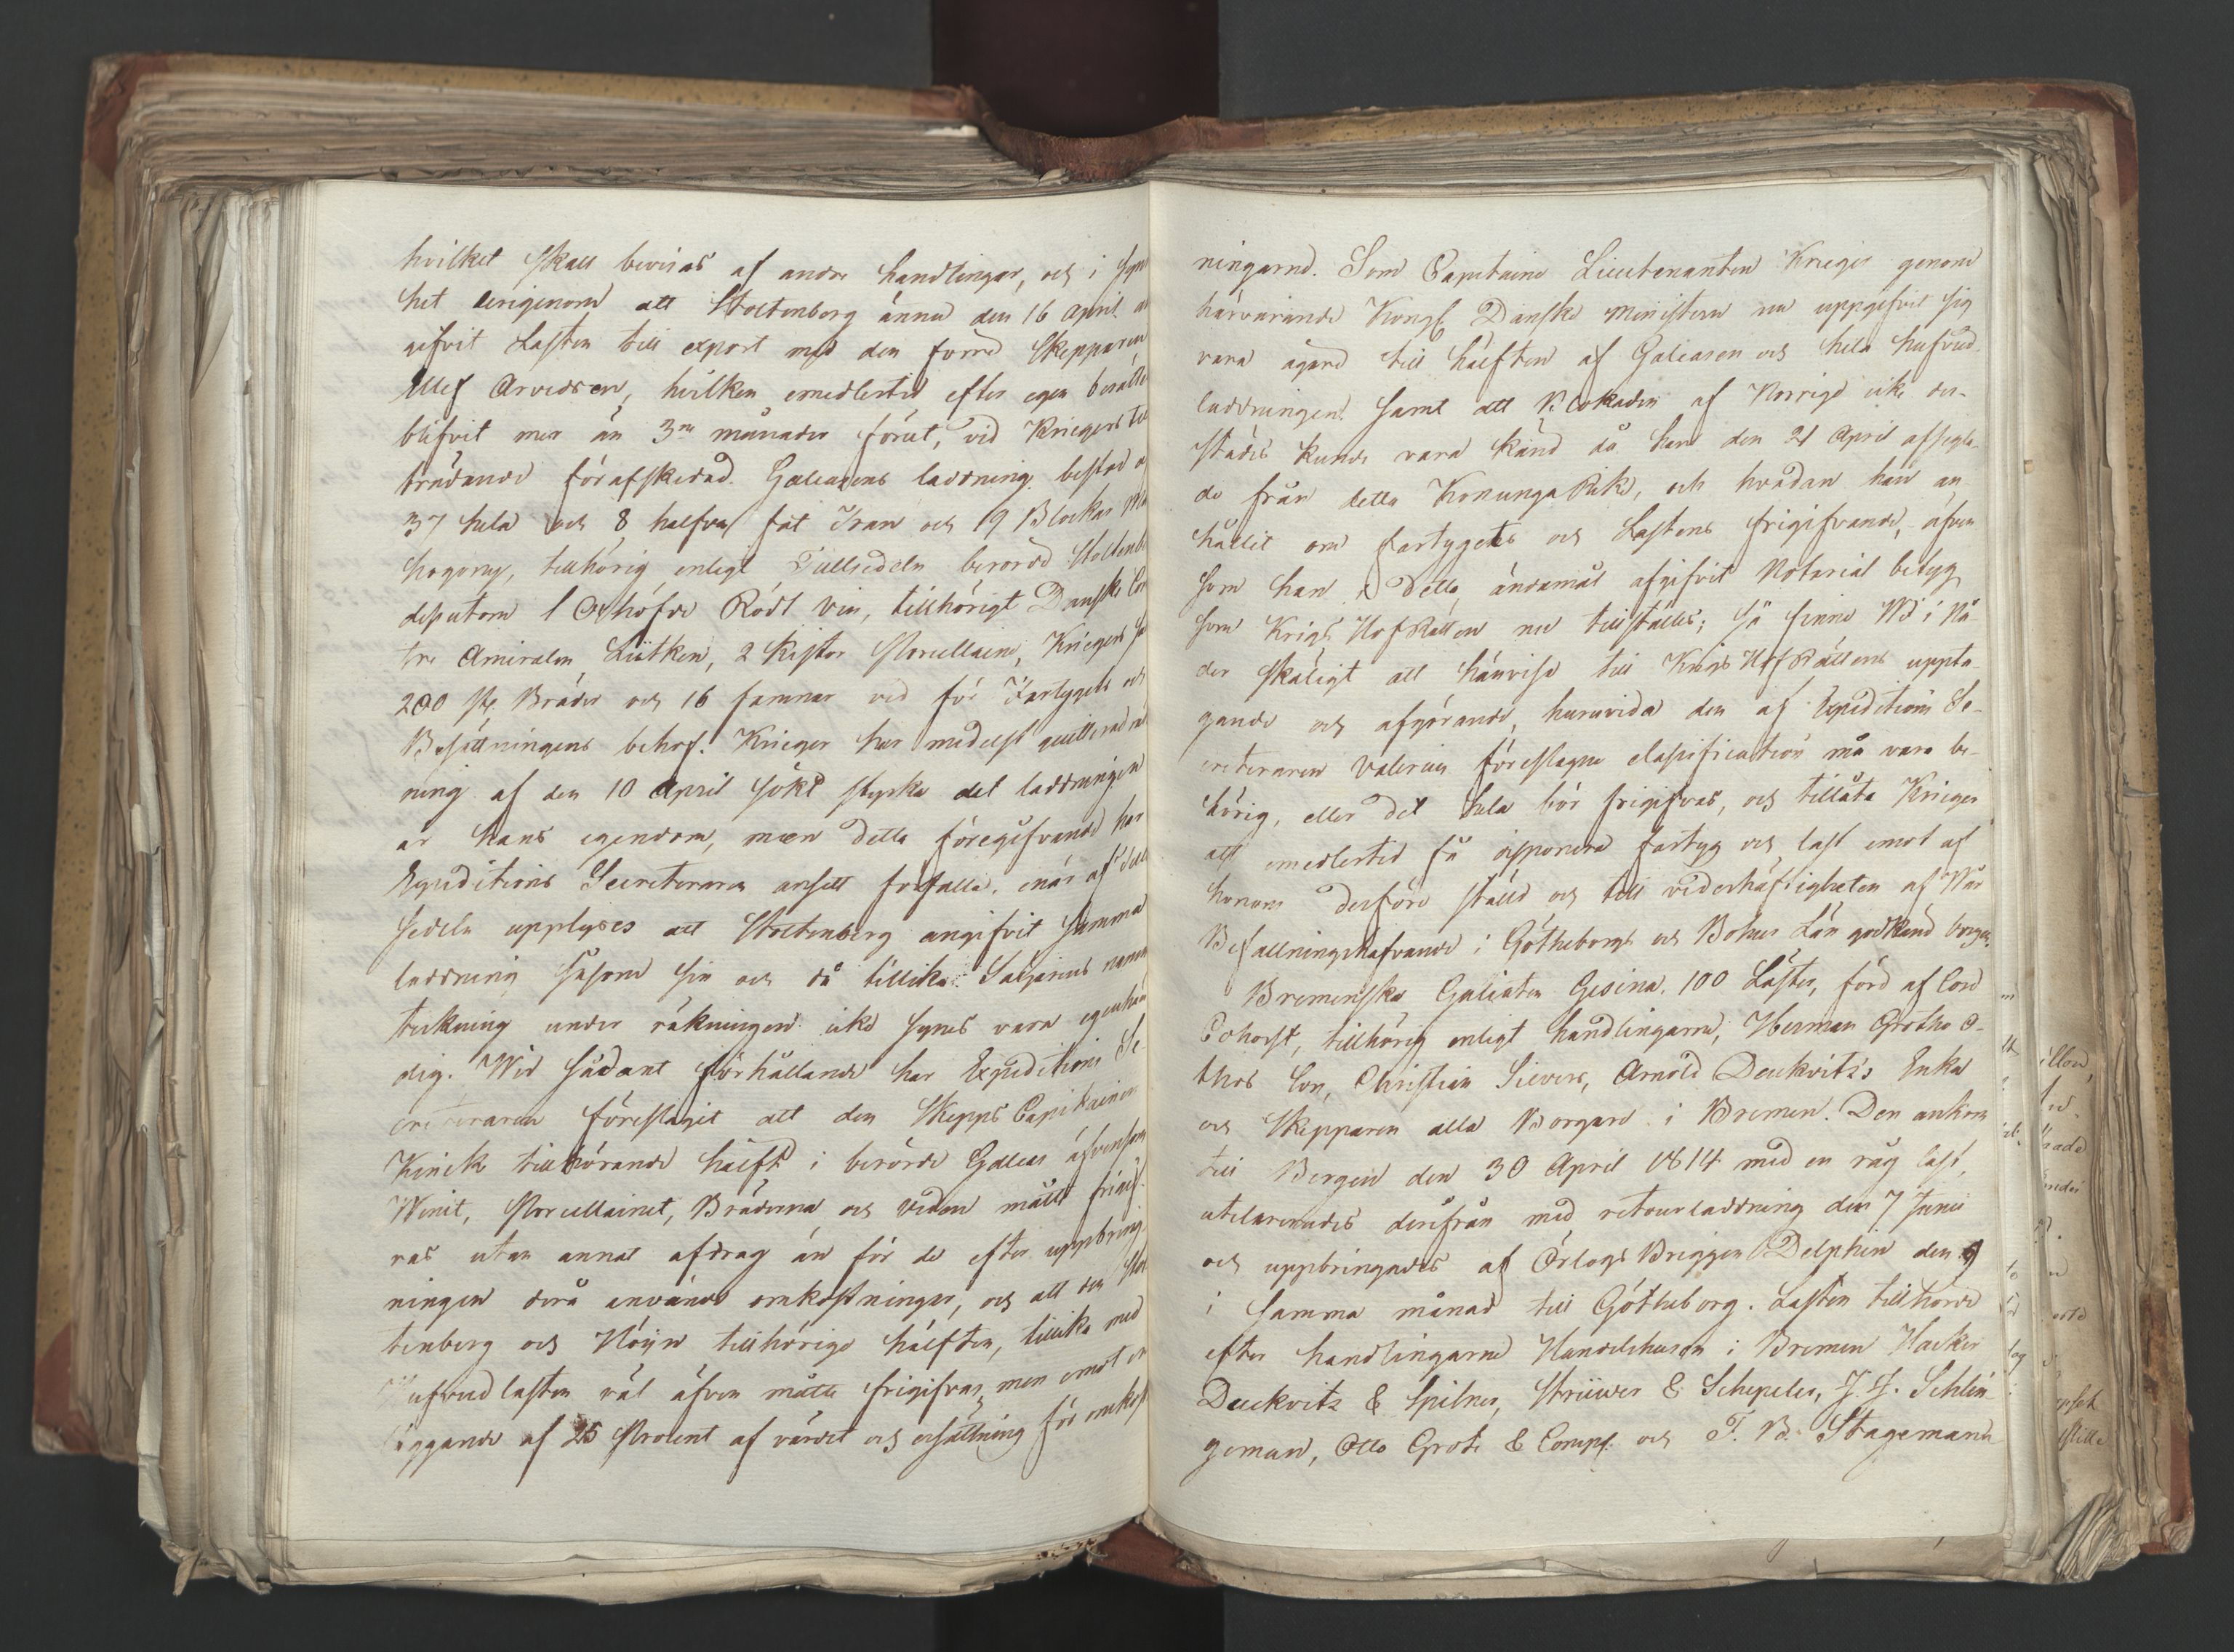 hvilket skall bevisas af andre handlingar, och i syn
het derigenom att Stoltenberg ännu den 16 April
gifvit Lasten till export med den förre Skepparen
Ulef Arvedsen, hvilken emedlertid efter egen berätte
blifvit mer än 3ne månader förut, vid Kriegers till
trädande förafskedad. Galeasens laddning bestod a
37 hela och 8 halfva fat Tran och 19 Blockar Ma
hogony, tillhörig enligt Tullsedeln berörde Stoltenbe
desutom 1 Oxhöfde Rödt Vin, tillhörigt Danske Con
tre Amiralen Lütken, 2 Kistor Porcellaine, Kriegers
200 st. Bräder och 16 famnar ved för Fartygets och
Besättningens behof. Krieger har medelst quitterad rä
ning af den 10 April sökt styrka att laddningen
är hans egendom, men detta föregifvande har
Expeditions Secreteraren ansett förfalla, enär af Tull
sedeln upplyses att Stoltenberg angifvit samma
laddning såsom sin och då tillika Säljarens namn
teckning under räkningen icke synes vara egenhän
dig. Wid sådant förhållande har Expeditions Se-
creteraren föreslagit att den Skepps Capitainen
Kinck tillhörande hälft i berörde Galeas äfvensom
Winet, Porcellainet, Bräderna och veden måtte frigif-
vas utan annat afdrag än för de efter uppbring-
ningen derå använde omkostningar, och att den Stol
tenberg och Höyn tillhörige hälften, tillika med
Hufvudlasten väl äfven måtte frigifvas men emot er
läggande af 25 Procent af värdet och ersättning för omkost
ningarne. Som Capitaine Lieutenanten Krieger genom
härvarande Kongl. Danske Ministern nu uppgifvit sig
vara ägare till hälften af Galeasen och hela hufvud-
laddningen samt att Blokaden af Norrige icke der-
städes kunde vara känd då han den 21 April afsegla-
de från detta Konunga Rike, och hvadan han an-
hållit om fartygets och Lastens frigifvande, äfven
som han i detta ändamål afgifvit Notarial betyg
som Krigs HofRätten nu tillställes; så finne Wi i Nå-
der skäligt att hänvisa till Krigs HofRättens uppta-
gande och afgörande, huruvida den af Expeditions Se-
creteraren Valerius föreslagne classification må vara be-
hörig, eller det hela bör frigifvas, och tillåta Krieger
att emedlertid få disponera fartyg och last emot af
honom derföre ställd och till vederhäftigheten af Wår
Befallningshafvande i Götheborgs och Bohus Län godkänd borgen.
Bremenska Galioten Gesina, 100 Läster, förd af Cord
Echorst, tillhörig enligt handlingarne, Herman Grothe O-
thos Son, Christian Sievers, Arnold Deukvitz's Enka
och Skepparen alla Borgare i Bremen. Den ankom
till Bergen den 30 April 1814 med en råg last,
utclarerades derifrån med retourladdning den 7 Junii
och uppbringades af Örlogs Briggen Delphin den 9
i samma månad till Götheborg. Lasten tillhörde
efter handlingarne Handelshusen i Bremen Hacker
Deukvitz & Spilner, Strüwer & Schepeler, J. H. Schlin
geman, Otto Grote & Comp. och F. B. Stagemann